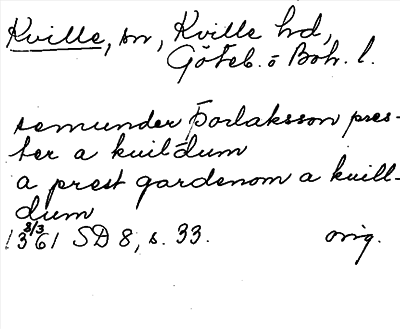 Kville, sn, Kville hd,
Göteb. o Boh. l.
remunder Þorlaksson pres-
ter a kuil-dum
a prest gardenom a kuill-
dum
13 8/3 61 SD 8, s. 33. orig.